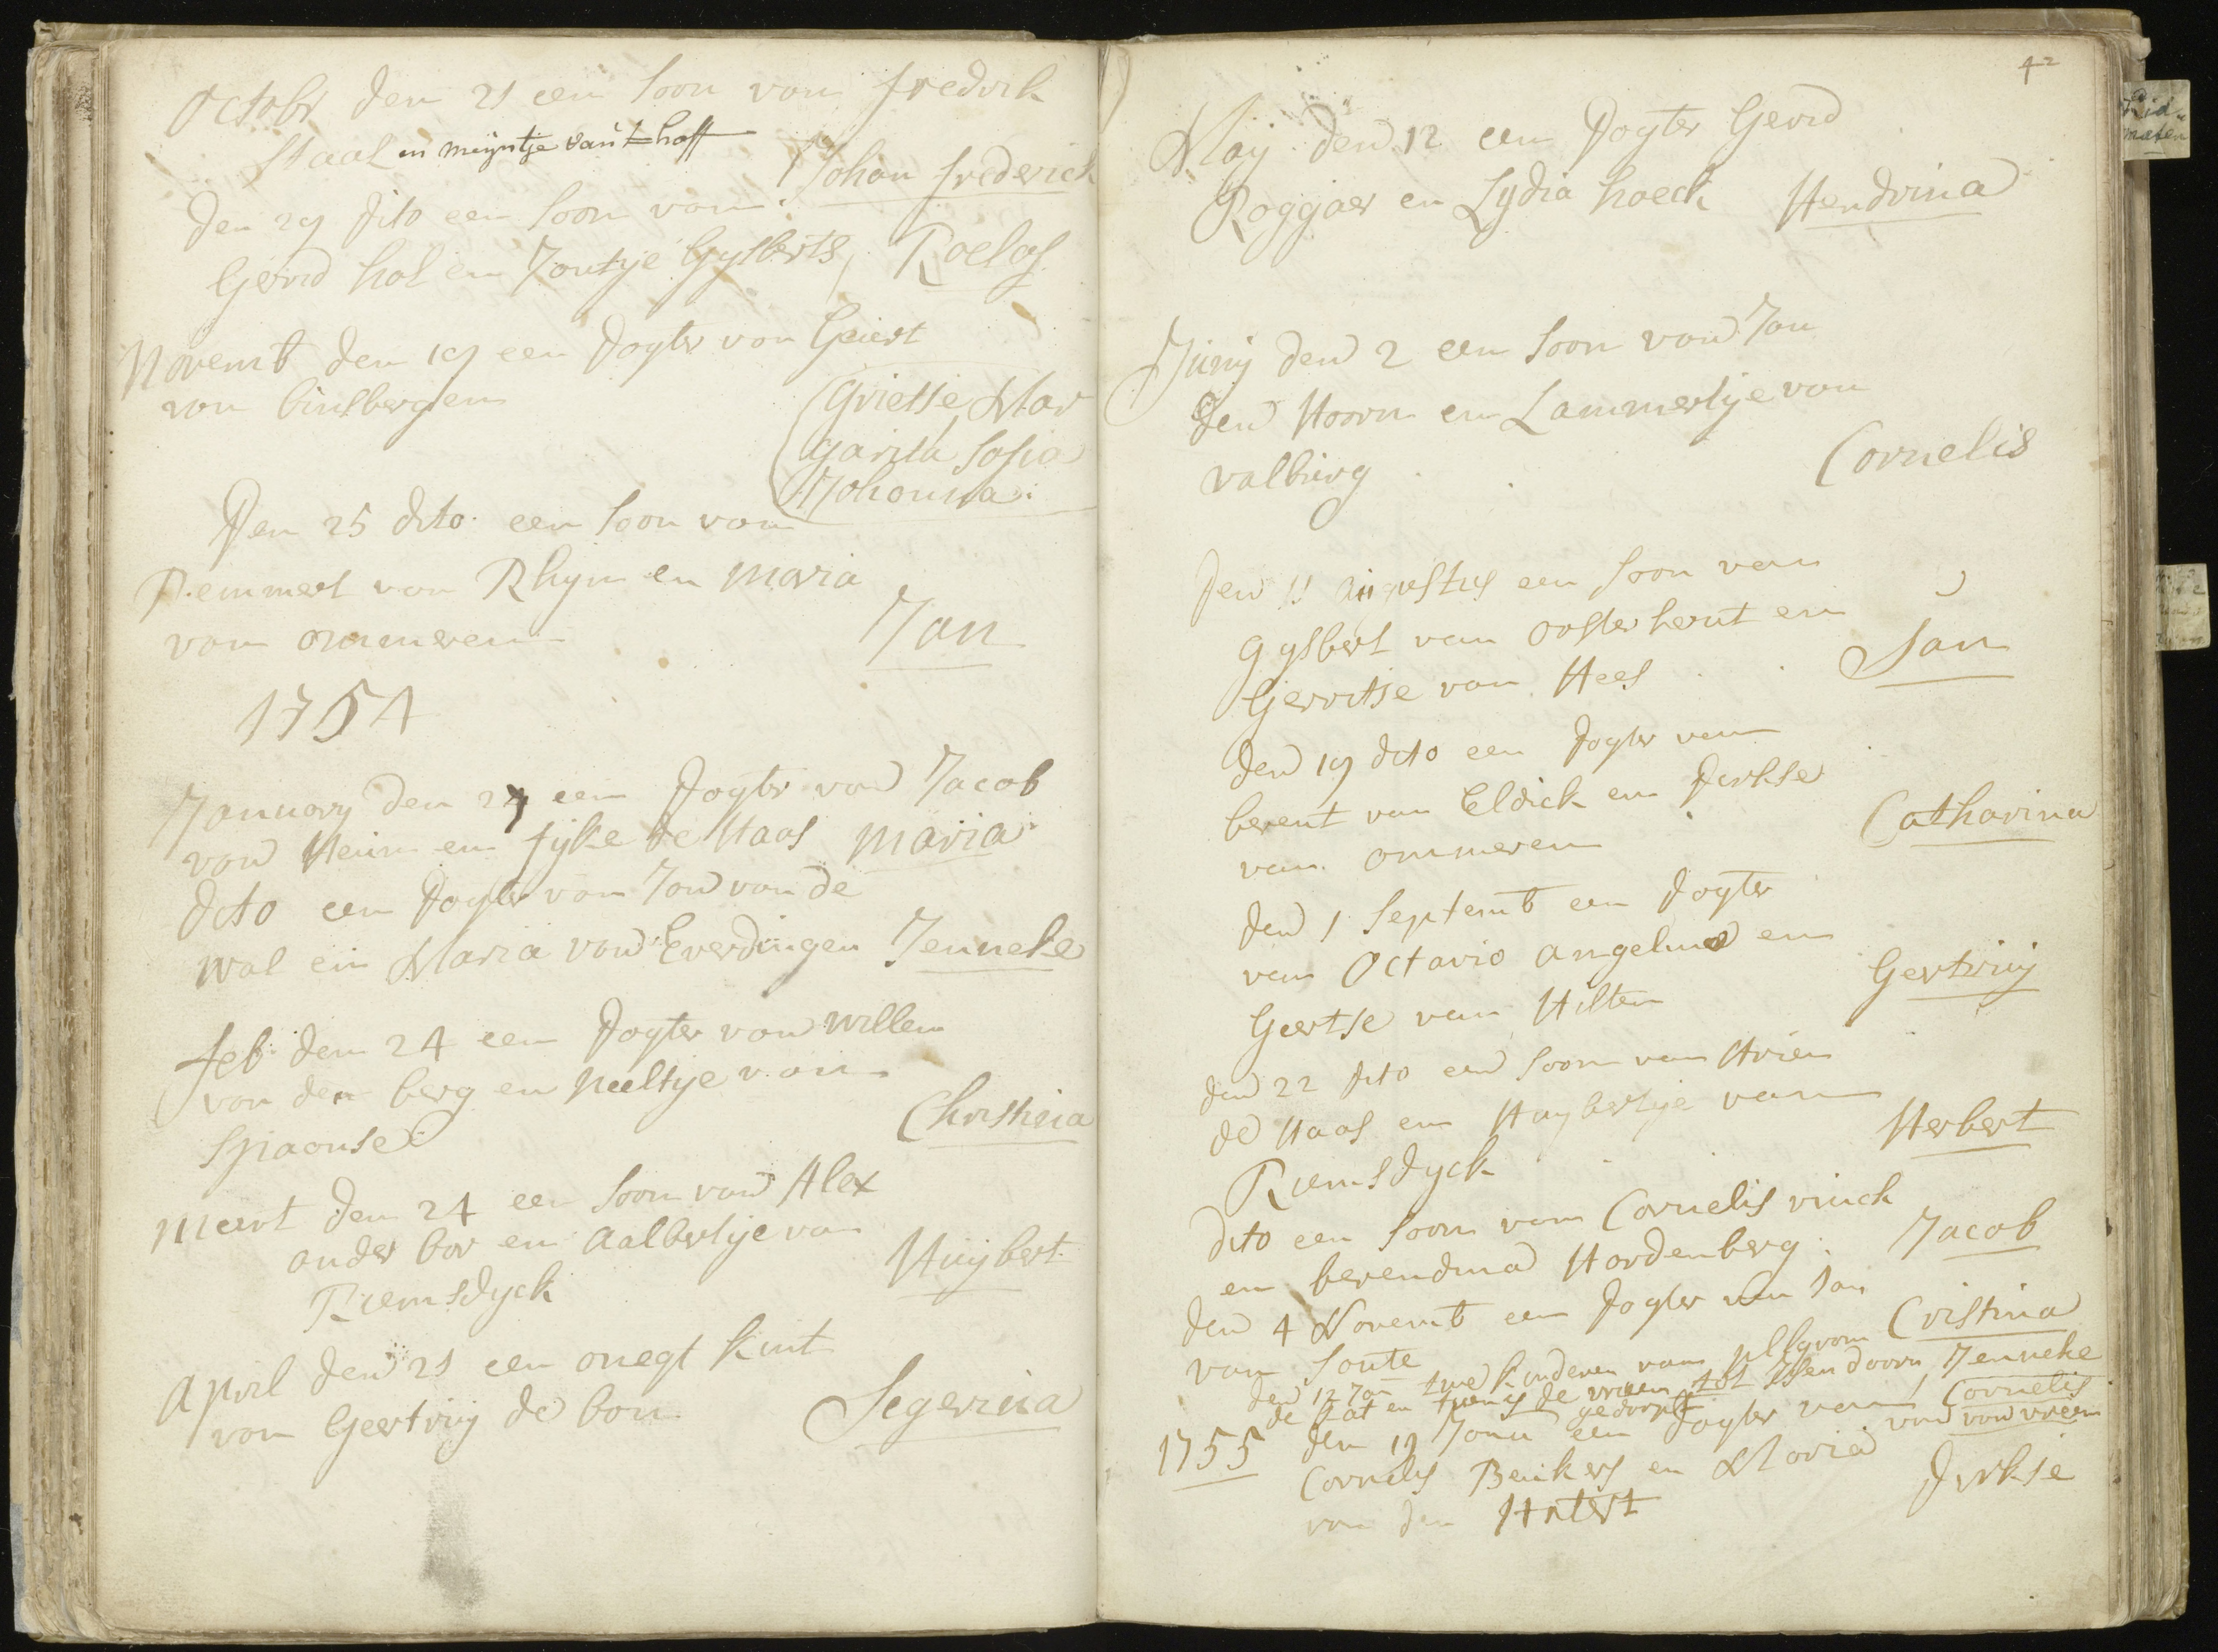 Octobr den 21 een soon van fredrik
Staal en meijntje van't hoff
Johan frederick
den 29 dito een soon van
Gerrid hol en Jontje Gysberts Roelof
Novemb den 19 een dogter van Geiert
von binsbergen
Grietje Mar
garita Sofia
Johonna
Den 25 dito een soon van
Remmert von Rhijn en Maria
von ommeren Jan
1754
January den 27 een dogter von Jacob
von Heim en fijke de Haas Maria
dito een dogter van Jon von de
Wal en Maria von Everdingen Jenneke
feb den 24 een dogter von Willem
von den berg en Neeltje von
Spaonse Christina
Meert den 24 een soon von Alex
ander bor en Aalbertje van
Riemsdyck Huijbert
April den 21 een onegt kint
von Geertruy de bon Segerina
42
May den 12 een dogter Gerrid
Roggaer en Lydia hoeck Hendrina
Juny den 2 een soon von Jan
den Hoorn en Lammertje von
valburg Cornelis
den 11 augustus een soon van
gysbert van oosterhout en
Gerritse von Hees Jan
den 19 dito een dogter van
berent van Eldick en dirkse
van ommeren Catharina
den 1 Septemb een dogter
van Octavio angelino en
Geertse van Hilten Gertruy
den 22 dito een soon van Arien
de Haas en Huybertje van
Riemsdyck Herbert
dito een soon van Cornelis vinck
en berendina Hordenberg Jacob
den 4 Novemb een dogter van Jan
van Soute Cristina
den 12 Jan twe kinderen van pllgrom
de kat en de vreem tot Ysendoorn Jenneke
gedoopt Cornelis
von von vreem
1755 den 19 Janu een dogter van
Cornelis Beukers en Maria von
von den Hatert Dirkse